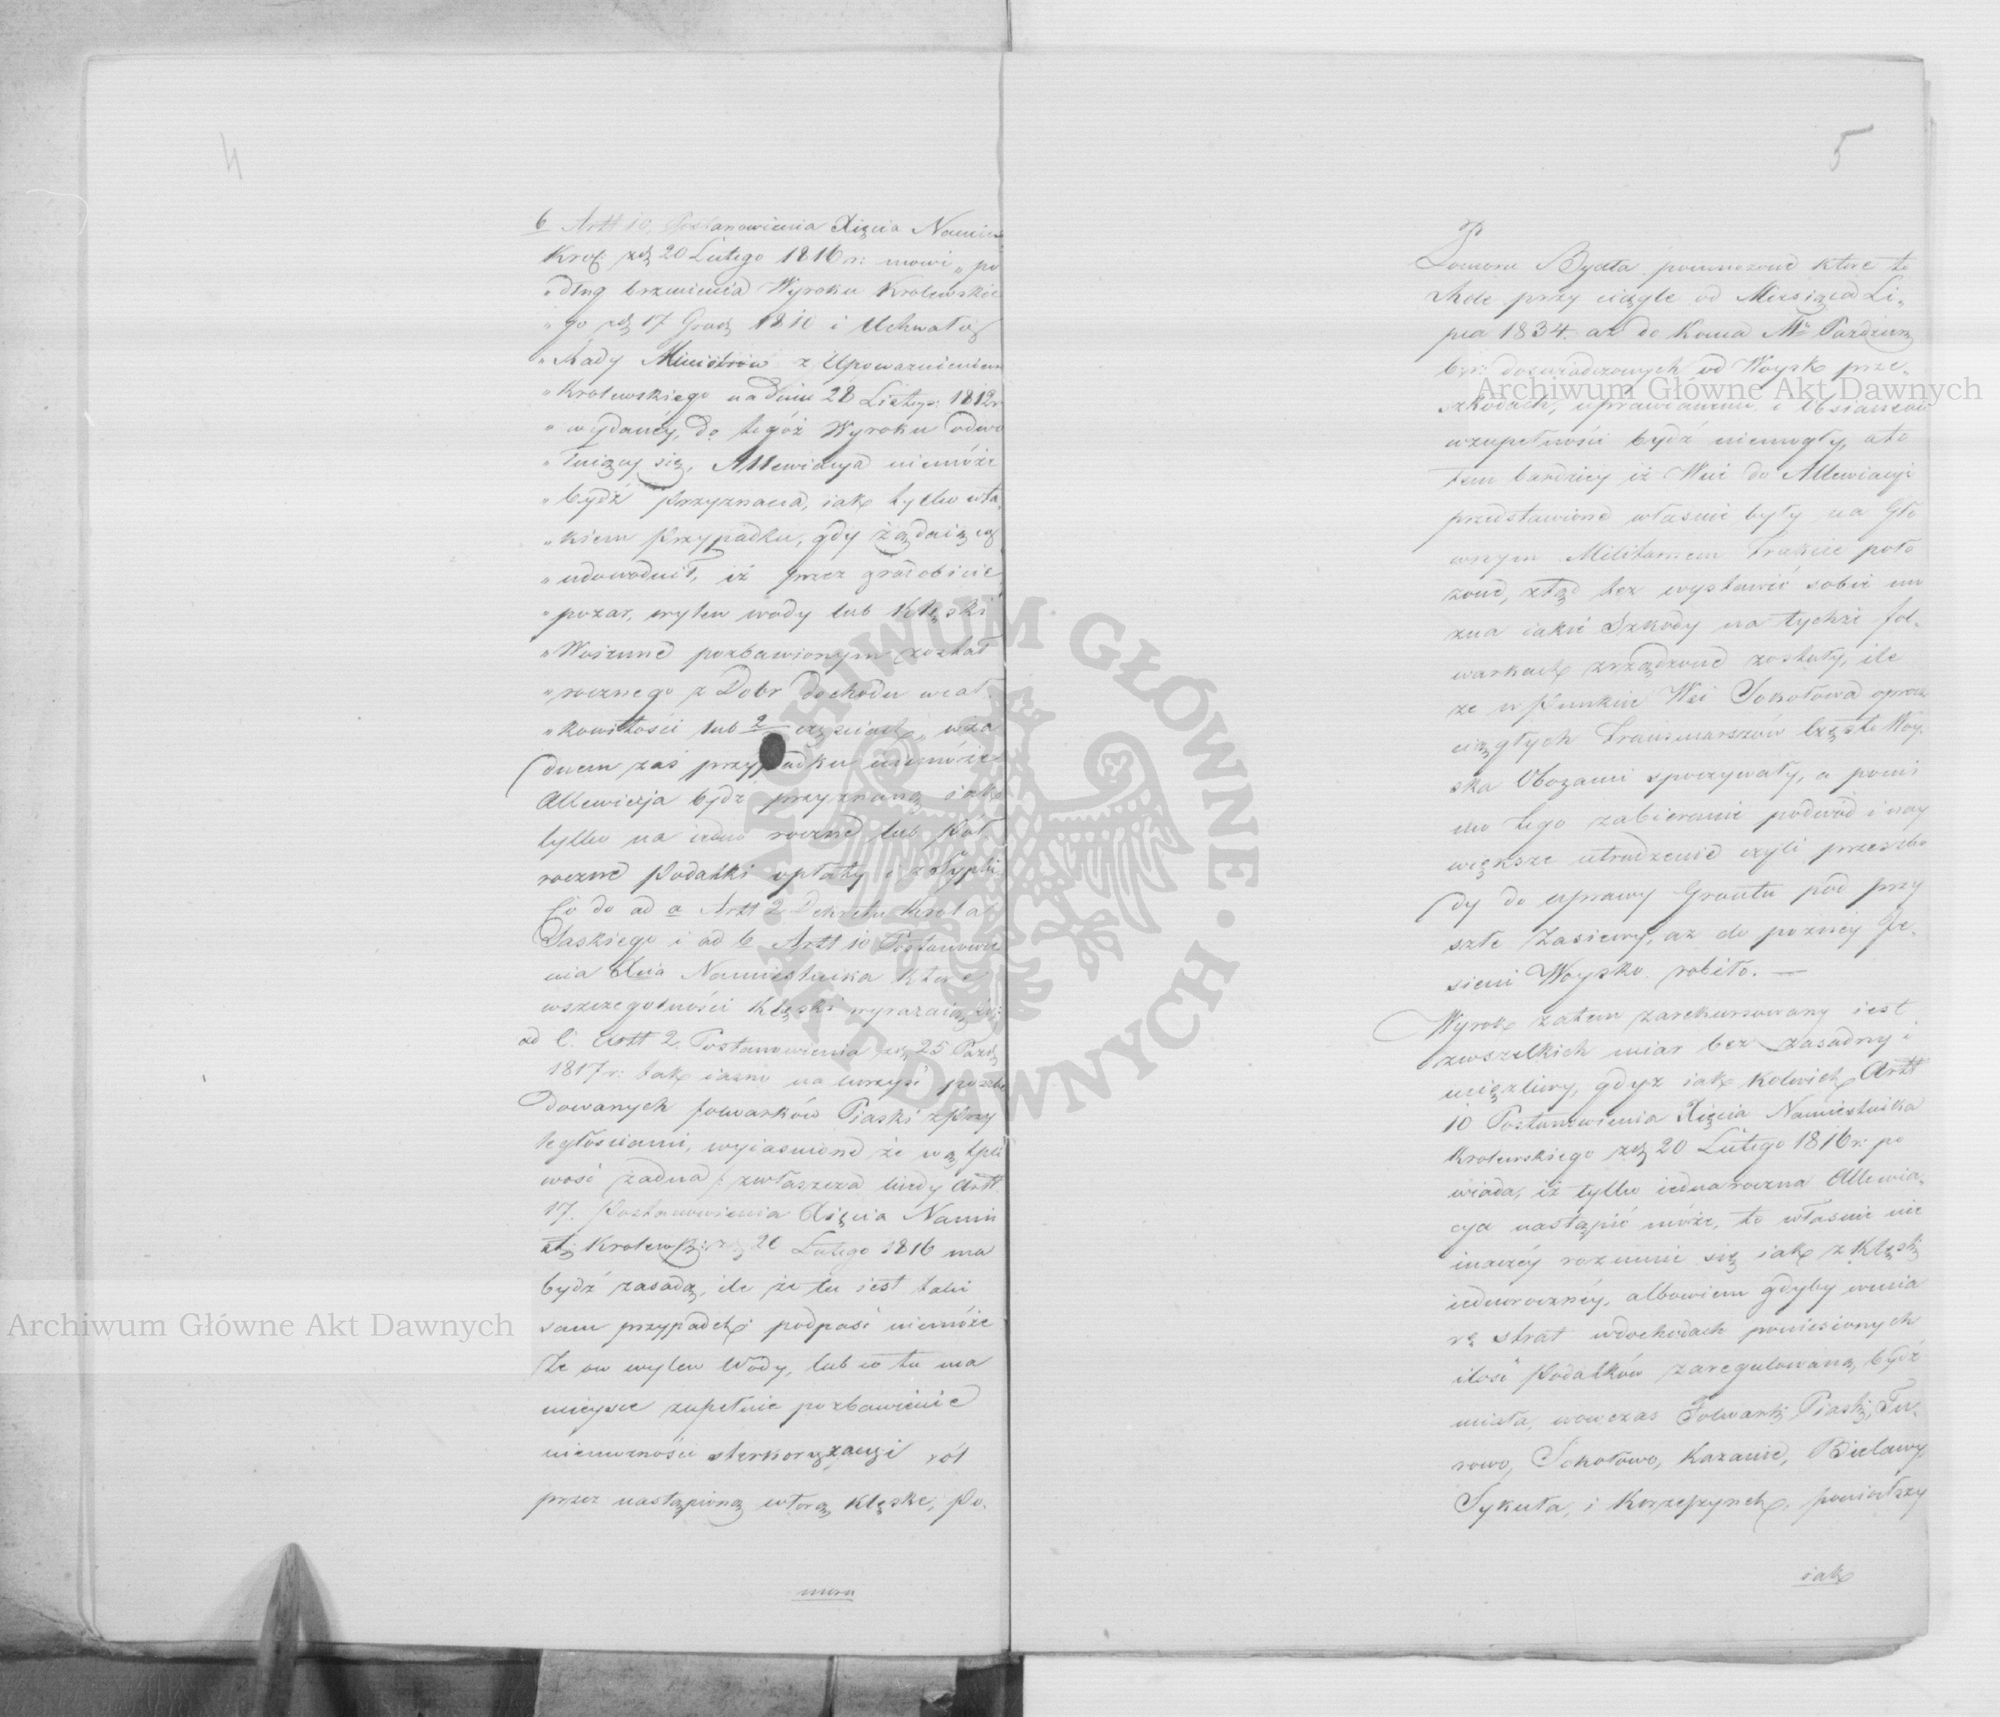 4
b Artt 10, Postanowienia Xięcia Namies
Krol: zdn 20 Lutego 1816 r: mowi „po
„dług brzmienia Wyroku Krolewskie
„go zdn 17 Grud 1810 i Uchwały
„Rady Ministrów z Upoważnieniem
„Krolewskiego na dniu 28 Listop: 1812 r
„wydanéy, do tegóż Wyroku odwo
„łuiącey się, Allewiacya niemoże
„bydź przyznaną, iak tylko w ta„
„kiem przypadku, gdy żądaiący
„udowodnił, iż przez gradobicie
„pożar, wylew wody lub klęski
„Woienne pozbawionym został
„rocznego z Dobr dochodu w cał„
„kowitości lub częściach„ w ża
dnem zaś przypadku niemoże
Allewiacja bydz przyznaną iak
tylko na iedno roczne lub pół„
roczne podatki opłaty
Co do ad a Artt 2 Dekretu Krola
Saskiego i ad b Artt 10 Postanowie
nia Xcia Namiestnika które
wszczegolności klęski wyrażaią
ad c. Artt 2. Postanowienia zdn 25 Paźd
1817 r: tak iasno na korzyść poszko
dowanych folwarków Piaski z przy
ległościami, wyiasnione że wątpli
wość żadna, zwłaszcza kiedy Artt
17. Postanowienia Xięcia Namie
Krolewsk: zdn 20 Lutego 1816 ma
bydź zasadą, ile że tu iest taki
sam przypadek i podpaść niemoże
że ow wylew Wody, lub co tu ma
mieysce zupełnie pozbawienie
niemożności sterkoryzacyi ról
przez nastąpioną wtorą klęskę, Po„
mora
5
Pomoru Bydła, pomnożone które to
Role przy ciągle od Miesiąca Li„
pca 1834. aż do Konca Mca Pazdzier
b: r: doswiadczonych od Woysk prze„
szkodach, uprawianemi i obsianemi
wzupełności bydź niemogły, a to
tem bardziey iż Wsie do Allewiacyi
przedstawione własnie były na Głó
wnym Militarnem Trakcie poło
żone, ztąd też wystawić sobie mo
żna iakie Szkody na tychże fol„
warkach zrządzone zostały, ile
że w Punkcie Wsi Sokołowa oprócz
ciągłych Transmarszów często Woy„
ska Obozami spoczywały, a pomi
mo tego zabieranie podwód i nay
większe utrudzenie czyli przeszko
dy do uprawy Gruntu pod przy
szłe Zasiewy, aż do pozney Je„
sieni Woysko robiło. —
Wyrok zatem zarekursowany iest
zewszelkich miar bez zasadny i
uciążliwy, gdyż iak kolwiek Artt
10 Postanowienia Xięcia Namiestnika
Krolewskiego zdn 20 Lutego 1816 r: po
wiada, iż tylko iednoroczna Allewia„
cya nastąpić może, to własnie nie
inaczéy rozumie się iak z Klęski
iednorocznéy, albowiem gdyby w mia
rę strat w dochodach poniesionych
ilość Podatków zaregulowaną bydź
miała, wowczas Folwarki Piaski, Tu„
rowo, Sokołowo, Kazanie, Bielawy,
Sykuła, i Korzepzynek, poniosłszy
iak
Archiwum Główne Akt Dawnych
Archiwum Główne Akt Dawnych
ARCHIWUM GŁÓWNE AKT DAWNYCH